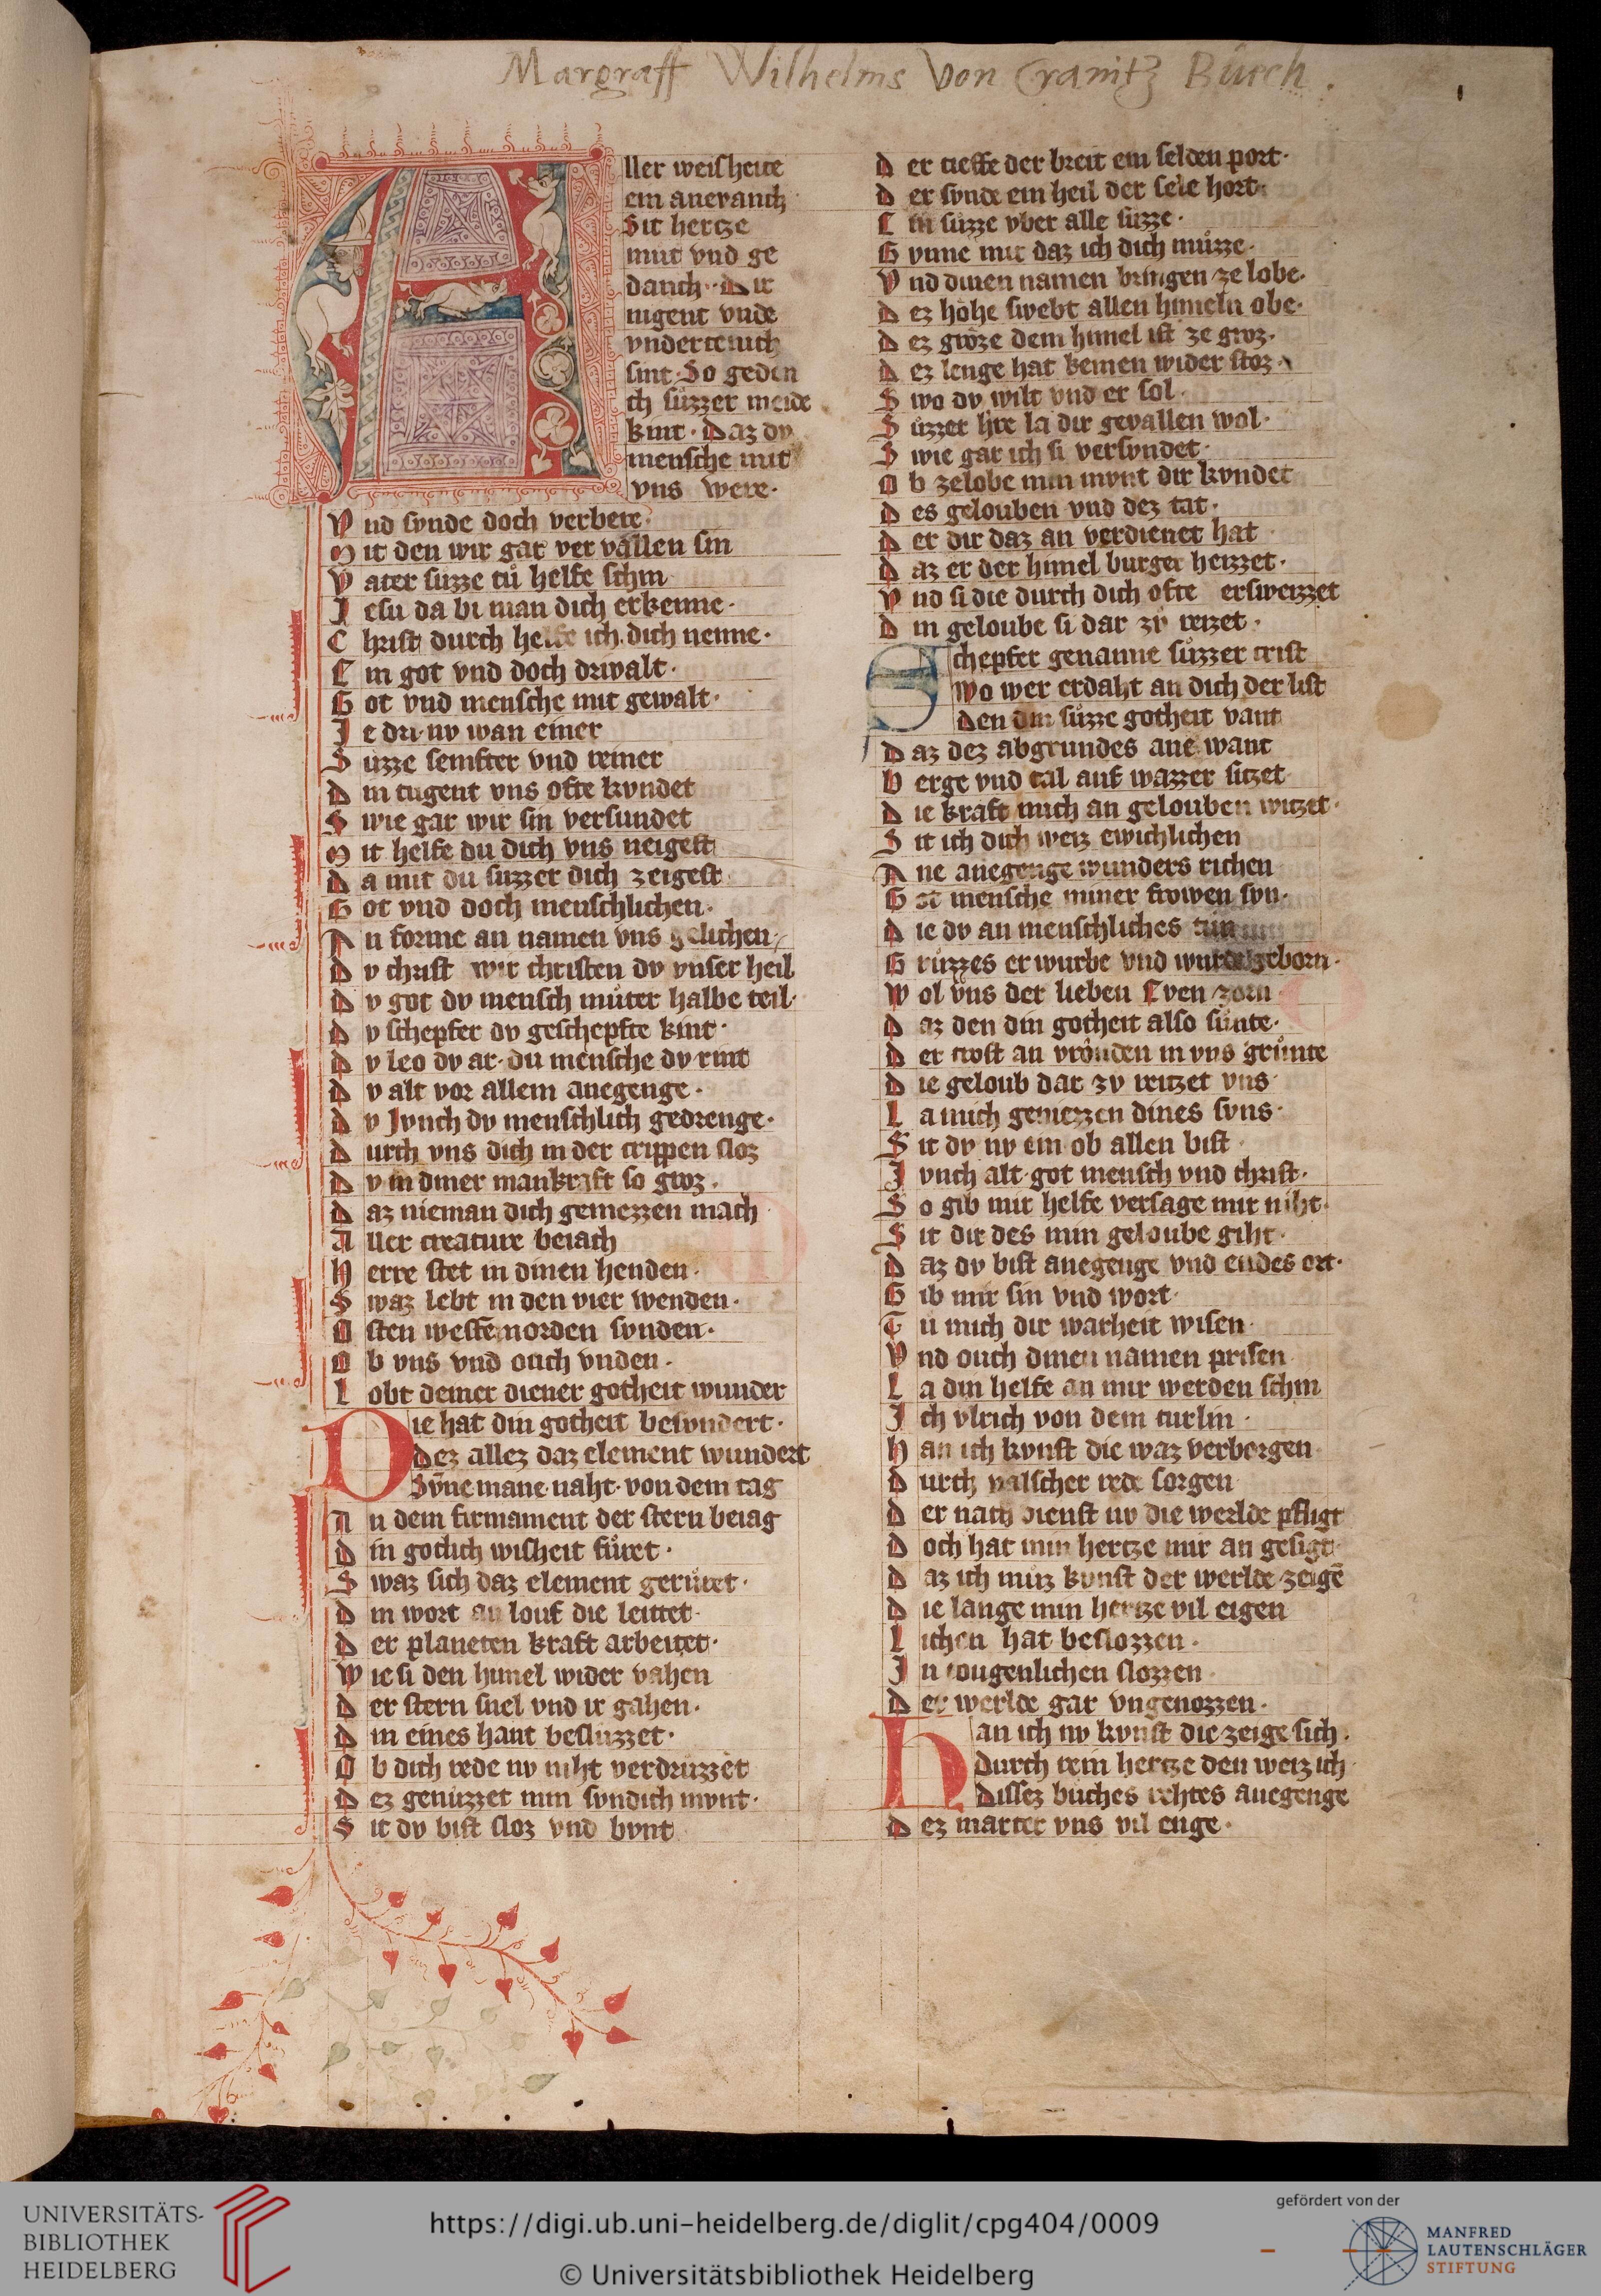 Margraff Wilhelms von Cranitz Buech.
Aller weisheite
ein anevanch
Sit hertze
mut vnd ge
danch · Dir
nigent vnde
vndertenich
sint · So geden
ch sůzzer meide
kint · Daz dv
mensche mit
vns were ·
Vnd svnde doch verbere ·
Mit den wir gar ver vallen sin
Vater sůzze tů helfe schin
Jesu da bi man dich erkenne ·
Christ durch helfe ich dich nenne ·
Ein got vnd doch driualt ·
Got vnd mensche mit gewalt ·
Je dri nv wan einer
Sůzze semfter vnd reiner
Din tugent vns ofte kvndet
Swie gar wir sin versundet
Mit helfe du dich vns neigest
Da mit du suzzer dich zeigest
Got vnd doch menschlichen ·
An forme an namen vns gelichen
Dv christ wir christen dv vnser heil
Dv got dv mensch můter halbe teil ·
Dv schepfer dv geschepfte kint ·
Dv leo dv ar · du mensche dv rint
Dv alt vor allem anegenge ·
Dv Jvnch dv menschlich gedrenge ·
Durch vns dich in der crippen sloz
Dv in diner mankraft so groz ·
Daz nieman dich gemezzen mach
Aller creature beiach
Herre stet in dinen henden ·
Swaz lebt in den vier wenden ·
Osten westen norden svnden ·
Ob vns vnd ouch vnden ·
Lobt deiner diener gotheit wunder
Die hat din gotheit besvndert ·
Dez allez daz element wundert
Svne mane naht · von dem tag
An dem firmament der stern beiag
Din gotlich wisheit fůret ·
Swaz sich daz element gerůret ·
Din wort an louf die leittet ·
Der planeten kraft arbeitet ·
Wie si den himel wider vahen
Der stern snel vnd ir gahen ·
Din eines hant besluzzet ·
Ob dich rede nv niht verdruzzet
Dez genuzzet min svndich mvnt ·
Sit dv bist sloz vnd bvnt
Der tieffe der breit ein selden port ·
Der svnde ein heil der sele hort
Ein sůzze vber alle sůzze ·
Gvnne mir daz ich dich můzze ·
Vnd dinen namen bringen ze lobe ·
Dez hohe swebt allen himeln obe ·
Dez groze dem himel ist ze groz ·
Dez lenge hat keinen wider stoz ·
Swo dv wilt vnd er sol
Sůzzer hre la dir gevallen wol ·
Swie gar ich si versvndet ·
Ob ze lobe min mvnt dir kvndet
Des gelouben vnd dez tat ·
Der dir daz an verdienet hat
Daz er der himel burger heizzet ·
Vnd si die durch dich ofte ersweizzet
Din geloube si dar zv reizet ·
Schepfer genanne sůzzer crist
Wo wer erdaht an dich der list
Den din sůzze gotheit vant
Daz dez abgrundes ane want
Berge vnd tal auf wazzer sitzet
Die kraft mich an gelouben witzet ·
Sit ich dich weiz ewichlichen
Ane anegenge wunders richen
Got mensche miner frowen svn ·
Die dv an menschliches
Grůzzes erwurbe vnd wurde geborn ·
Wol vns der lieben Even zorn
Daz den din gotheit also sůnte ·
Der trost an vrouden in vns grůnte
Die geloub dar zv reitzet vns ·
La mich geniezzen dines svns ·
Sit dv nv ein ob allen bist
Jvnch alt · got mensch vnd christ ·
So gib mir helfe versage mir niht
Sit dir des min geloube giht ·
Daz dv bist anegenge vnd endes ort ·
Gib mir sin vnd wort ·
Tu mich dir warheit wisen ·
Vnd ouch dinen namen prisen
La din helfe an mir werden schin
Jch vlrich von dem turlin ·
Han ich kvnst die waz verborgen
Durch valscher rede sorgen
Der nach dienst nv die werlde pfligt
Doch hat min hertze mir an gesigt
Daz ich můz kvnst der werlde zeigē
Die lange min hertze vil eigen
Lichen hat beslozzen ·
Jn tougenlichen slozzen
Der werlde gar vngenozzen ·
Han ich nv kvnst die zeige sich ·
Durch rein hertze den weiz ich
Dissez buches rehtes anegenge
Dez marter vns vil enge ·
UNIVERSITÄTS-
BIBLIOTHEK
HEIDELBERG
https://digi.ub.uni-heidelberg.de/diglit/cpg404/0009
© Universitätsbibliothek Heidelberg
gefördert von der
MANFRED
LAUTENSCHLÄGER
STIFTUNG